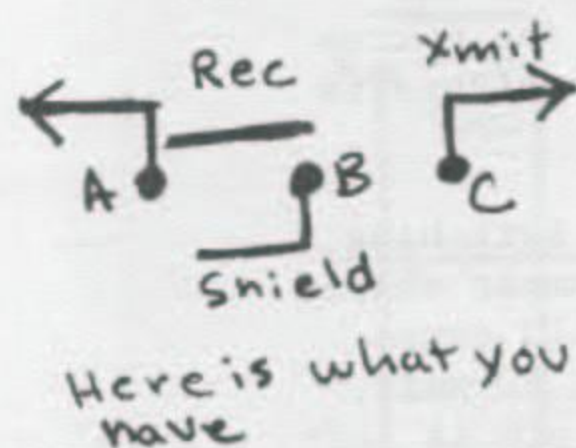 Xmit
Rec
A
B
C
Shield
Here is what you
have